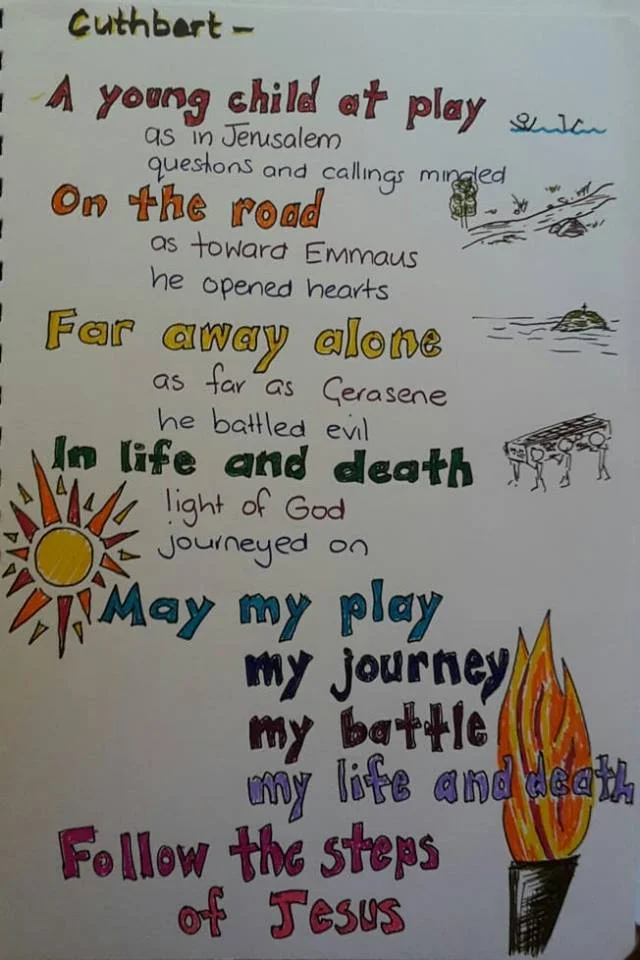 Cuthbert -
A young child at play
as in Jerusalem
questions and callings minded
On the road
as toward Emmaus
he opened hearts
Far away alone
as far as Gerasene
he battled evil
In life and death
light of God
journeyed on
May my play
my journey
my battle
my life and death
Follow the steps
of Jesus